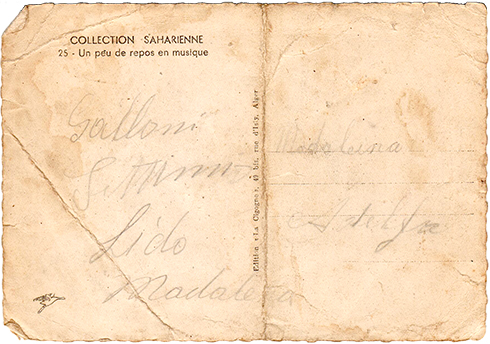 COLLECTION SAHARIENNE
25 - Un peu de repos en musique
Galloni
Lido
Madalena
Edition « La Cigogne », 49 bis, rue d'Isly, Alger
Madalena